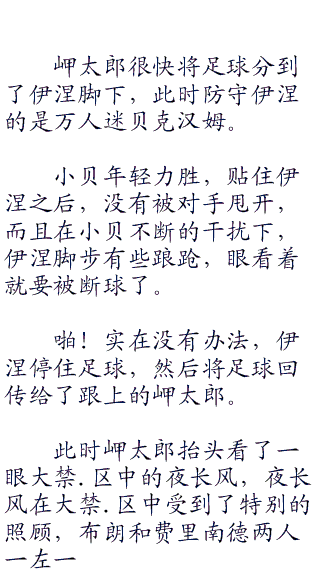 岬太郎很快将足球分到
了伊涅脚下，此时防守伊涅
的是万人迷贝克汉姆。
小贝年轻力胜，贴住伊
涅之后，没有被对手甩开，
而且在小贝不断的干扰下，
伊涅脚步有些踉跄，眼看着
就要被断球了。
啪！实在没有办法，伊
涅停住足球，然后将足球回
传给了跟上的岬太郎。
此时岬太郎抬头看了一
眼大禁.区中的夜长风，夜长
风在大禁.区中受到了特别的
照顾，布朗和费里南德两人
一左一